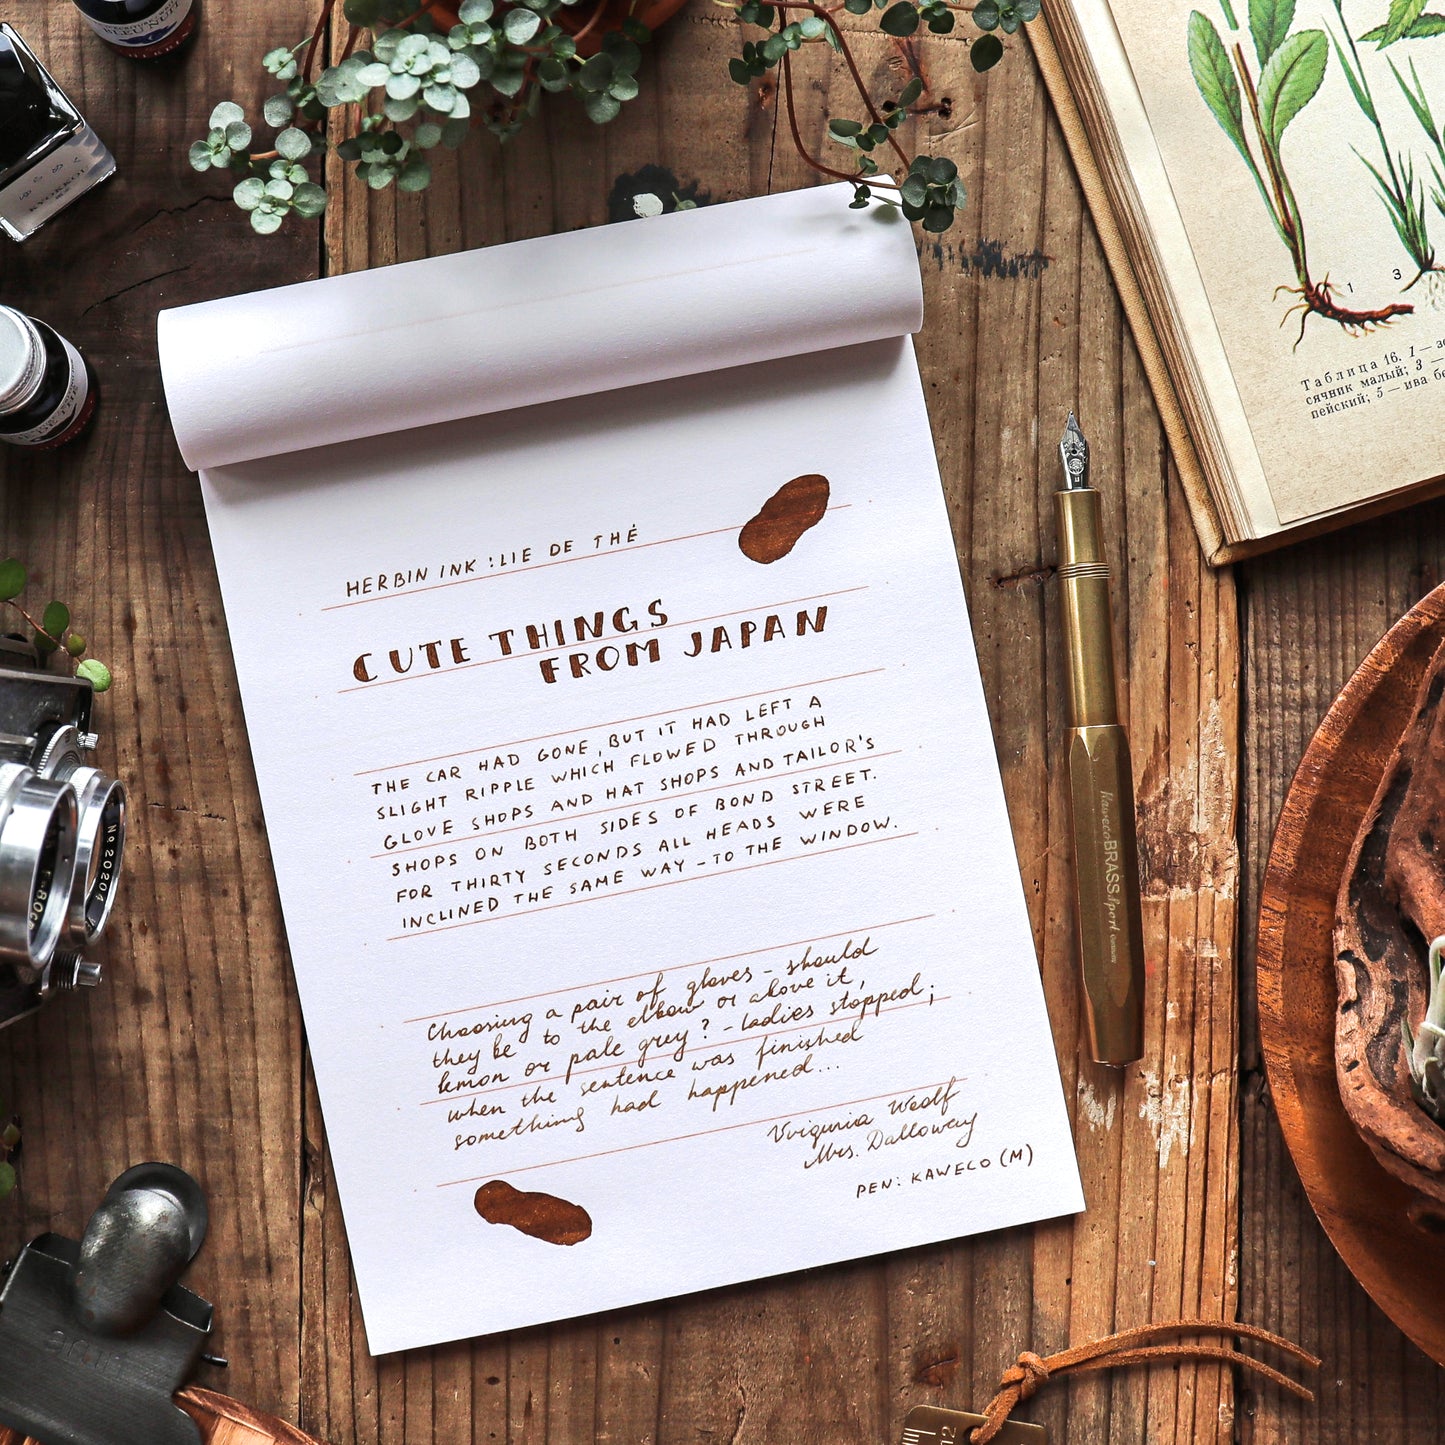 HERBIN INK : LIE DE THÉ
CUTE THINGS
FROM JAPAN
THE CAR HAD GONE, BUT IT HAD LEFT A
SLIGHT RIPPLE WHICH FLOWED THROUGH
GLOVE SHOPS AND HAT SHOPS AND TAILOR'S
SHOPS ON BOTH SIDES OF BOND STREET.
FOR THIRTY SECONDS ALL HEADS WERE
INCLINED THE SAME WAY - TO THE WINDOW.
Choosing a pair of gloves - should
they be to the elbow or above it,
lemon or pale grey? - ladies stopped;
when the sentence was finished
something had happened...
Virginia Woolf
Mrs. Dalloway
PEN: KAWECO (M)
Kaweco BRASS Sport
1
3
Таблица 16. 1 —
сячник малый; 3 —
пейский; 5 — ива
No.20204
12